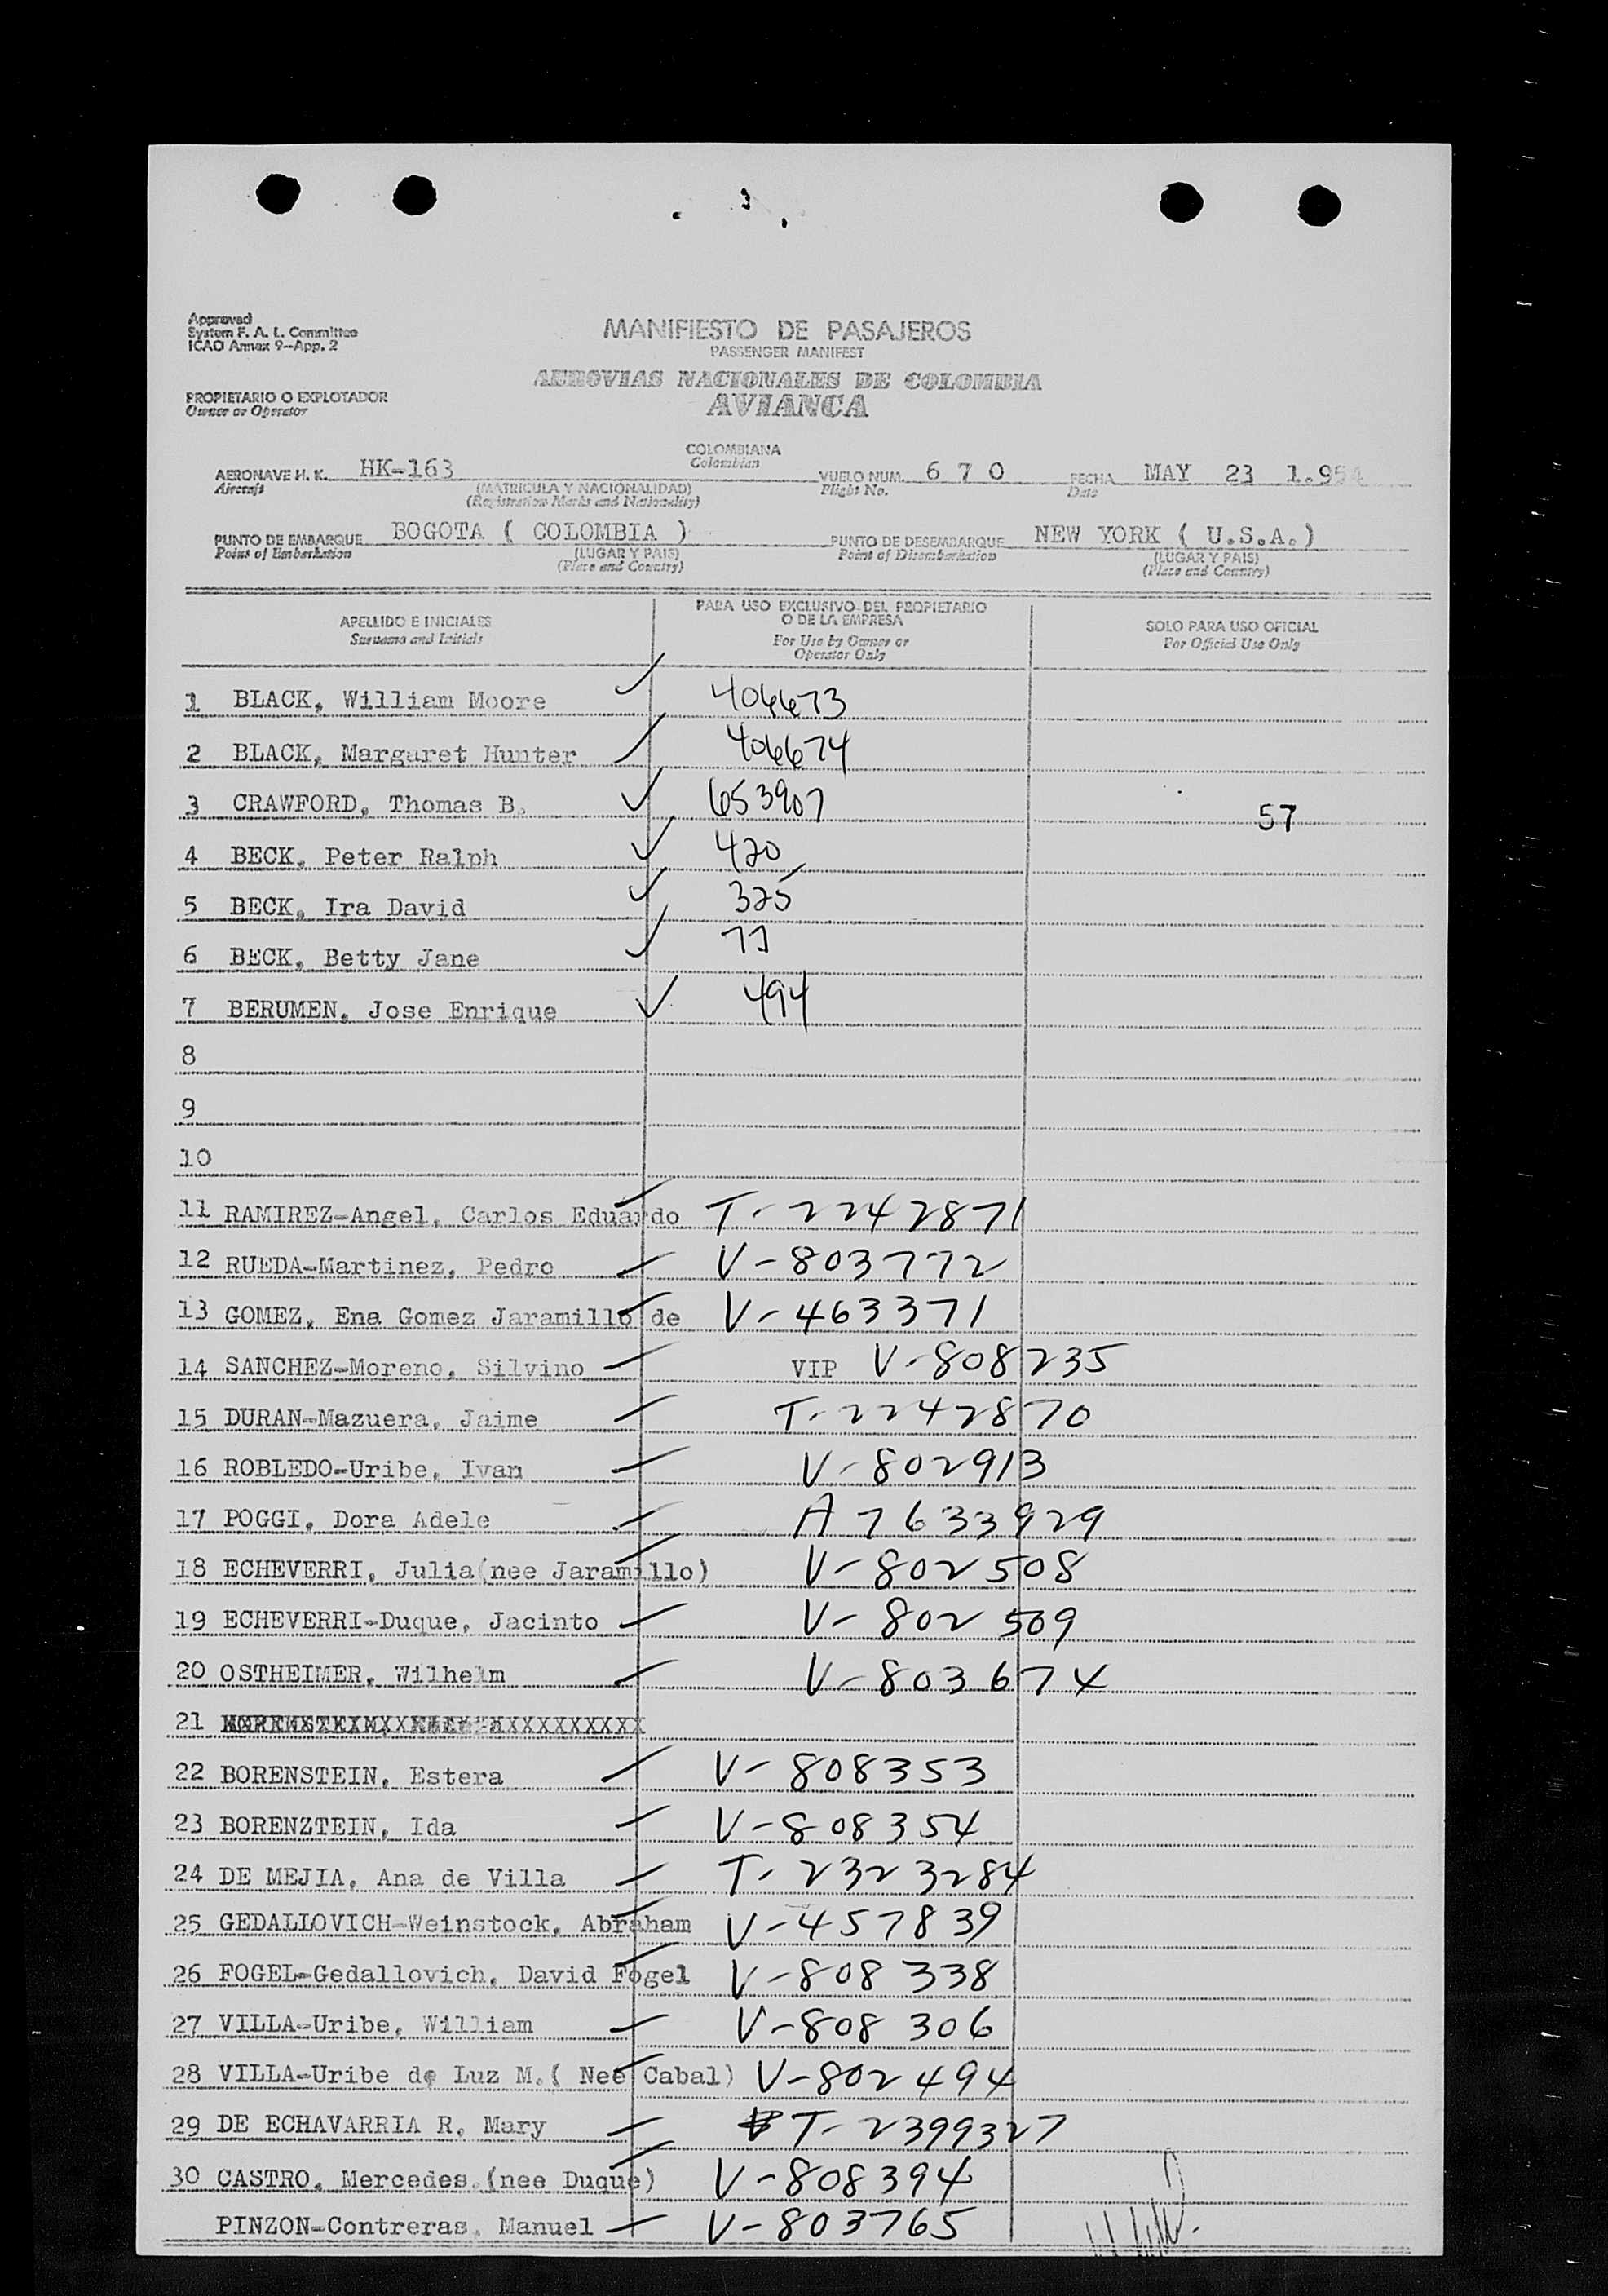 Approved
System F. A. L. Committee
ICAO Annex 9-App. 2
MANIFIESTO DE PASAJEROS
PASSENGER MANIFEST
AEROVIAS NACIONALES DE COLOMBIA
AVIANCA
PROPIETARIO O EXPLOTADOR
Owner or Operator
COLOMBIANA
Colombian
AERONAVE H. K. HK-163 VUELO NUM. 6 7 0 FECHA MAY 23 1.954
Aircraft (MATRICULA Y NACIONALIDAD) Flight No. Date
(Registration Marks and Nationality)
PUNTO DE EMBARQUE BOGOTA ( COLOMBIA ) PUNTO DE DESEMBARQUE NEW YORK ( U.S.A.)
Point of Embarkation (LUGAR Y PAIS) Point of Disembarkation (LUGAR Y PAIS)
(Place and Country) (Place and Country)
APELLIDO E INICIALES
Surname and Initials
PARA USO EXCLUSIVO DEL PROPIETARIO
O DE LA EMPRESA
For Use by Owner or
Operator Only
SOLO PARA USO OFICIAL
For Official Use Only
1 BLACK, William Moore ✓ 406673
2 BLACK, Margaret Hunter ✓ 406674
3 CRAWFORD, Thomas B. ✓ 653907 57
4 BECK, Peter Ralph ✓ 420
5 BECK, Ira David ✓ 325
6 BECK, Betty Jane ✓ 77
7 BERUMEN, Jose Enrique ✓ 494
8
9
10
11 RAMIREZ-Angel, Carlos Eduardo T-2242871
12 RUEDA-Martinez, Pedro V-803772
13 GOMEZ, Ena Gomez Jaramillo de V-463371
14 SANCHEZ-Moreno, Silvino VIP V-808235
15 DURAN-Mazuera, Jaime T-2242870
16 ROBLEDO-Uribe, Ivan V-802913
17 POGGI, Dora Adele A 7633929
18 ECHEVERRI, Julia(nee Jaramillo) V-802508
19 ECHEVERRI-Duque, Jacinto V-802509
20 OSTHEIMER, Wilhelm V-803674
21
22 BORENSTEIN, Estera V-808353
23 BORENZTEIN, Ida V-808354
24 DE MEJIA, Ana de Villa T-2323284
25 GEDALLOVICH-Weinstock, Abraham V-457839
26 FOGEL-Gedallovich, David Fogel V-808338
27 VILLA-Uribe, William V-808306
28 VILLA-Uribe de Luz M.( Nee Cabal) V-802494
29 DE ECHAVARRIA R, Mary T-2399327
30 CASTRO, Mercedes.(nee Duque) V-808394
PINZON-Contreras, Manuel V-803765